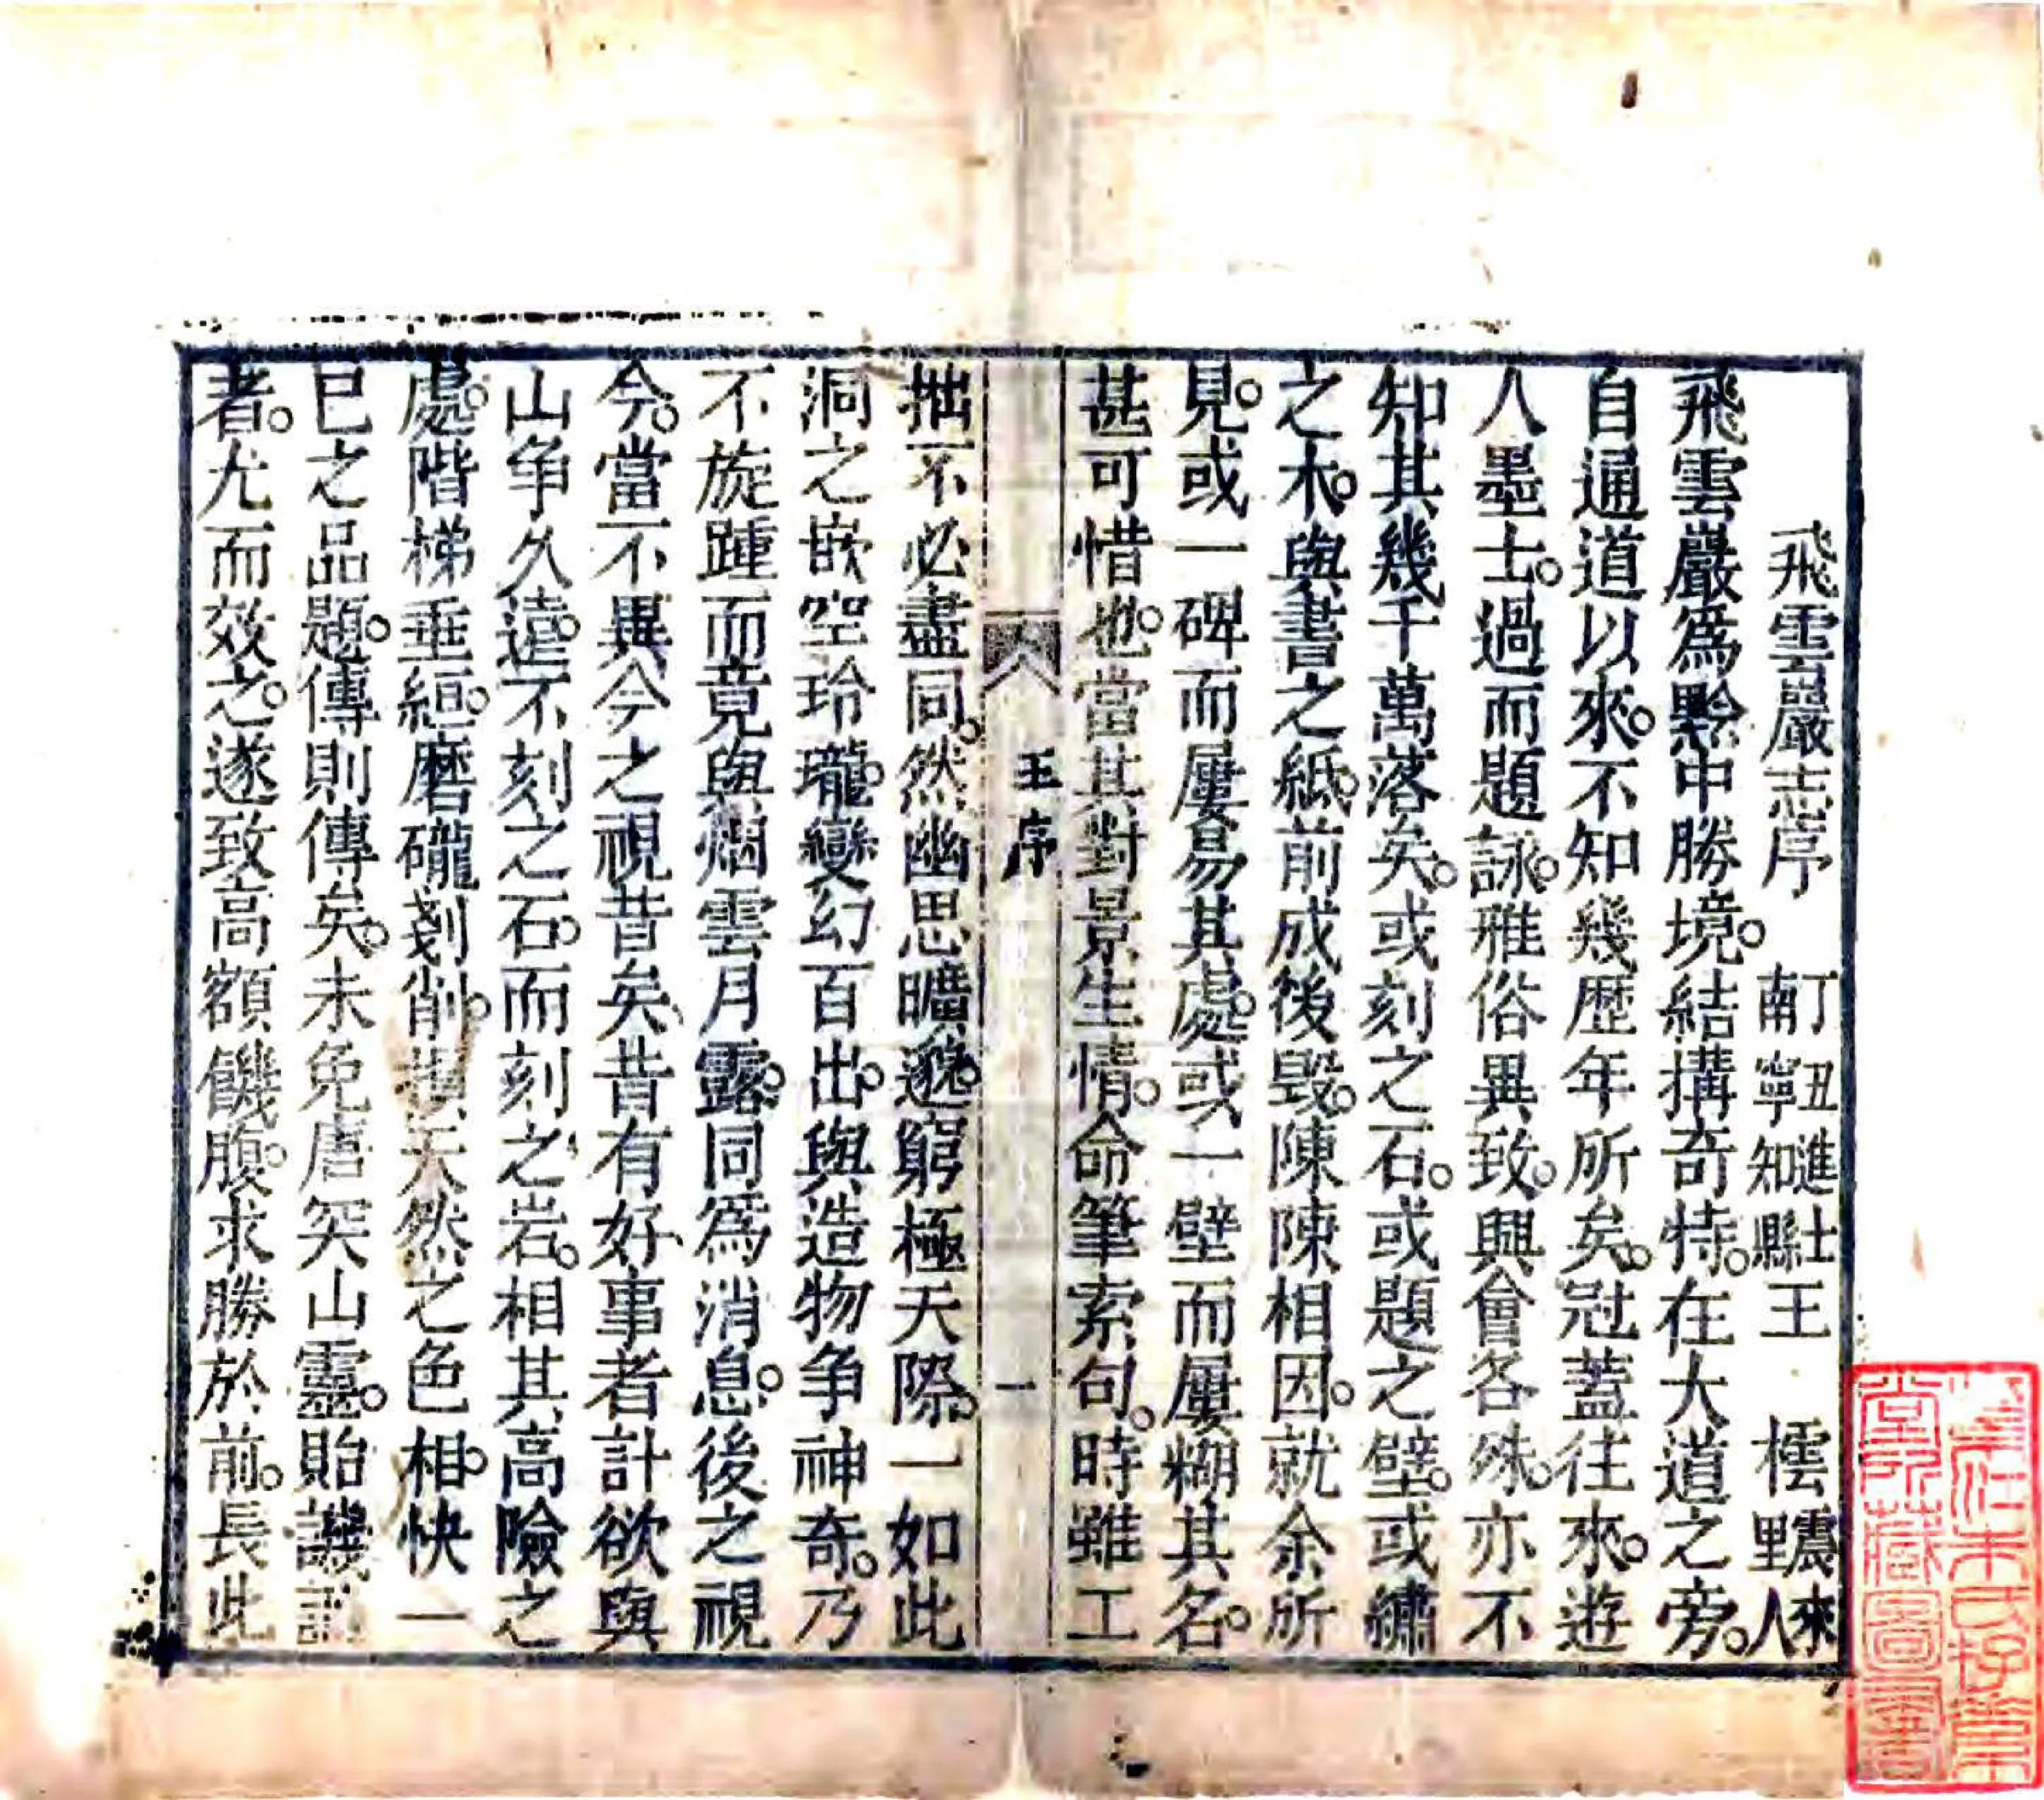 飛雲巖志序　丁丑進士南寧知縣王　橒震來野人
飛雲巖爲黔中勝境。結搆奇特。在大道之旁。
自通道以來。不知幾歷年所矣。冠蓋往來。遊
人墨士。過而題詠。雅俗異致。興會各殊。亦不
知其幾千萬落矣。或刻之石。或題之壁。或繡
之木。與書之紙。前成後毀。陳陳相因。就余所
見。或一碑而屢易其處。或一壁而屢糊其名。
甚可惜也。當其對景生情。命筆索句。時雖工
王序
一
拙不必盡同。然幽思曠邈。窮極天際。一如此
洞之嵌空玲瓏。變幻百出。與造物争神奇。乃
不旋踵而竟與烟雲月露。同爲消息。後之視
今。當不異今之視昔矣、昔有好、事者計欲與
山争久遠。不刻之石。而刻之岩。相其高險之
處。階梯垂緪。磨礲剗削。損天然之色相。快一
已之品題。傳則傳矣。未免唐突山靈。貽譏
者。尤而效之。遂致高額饑腹。求勝於前。長此